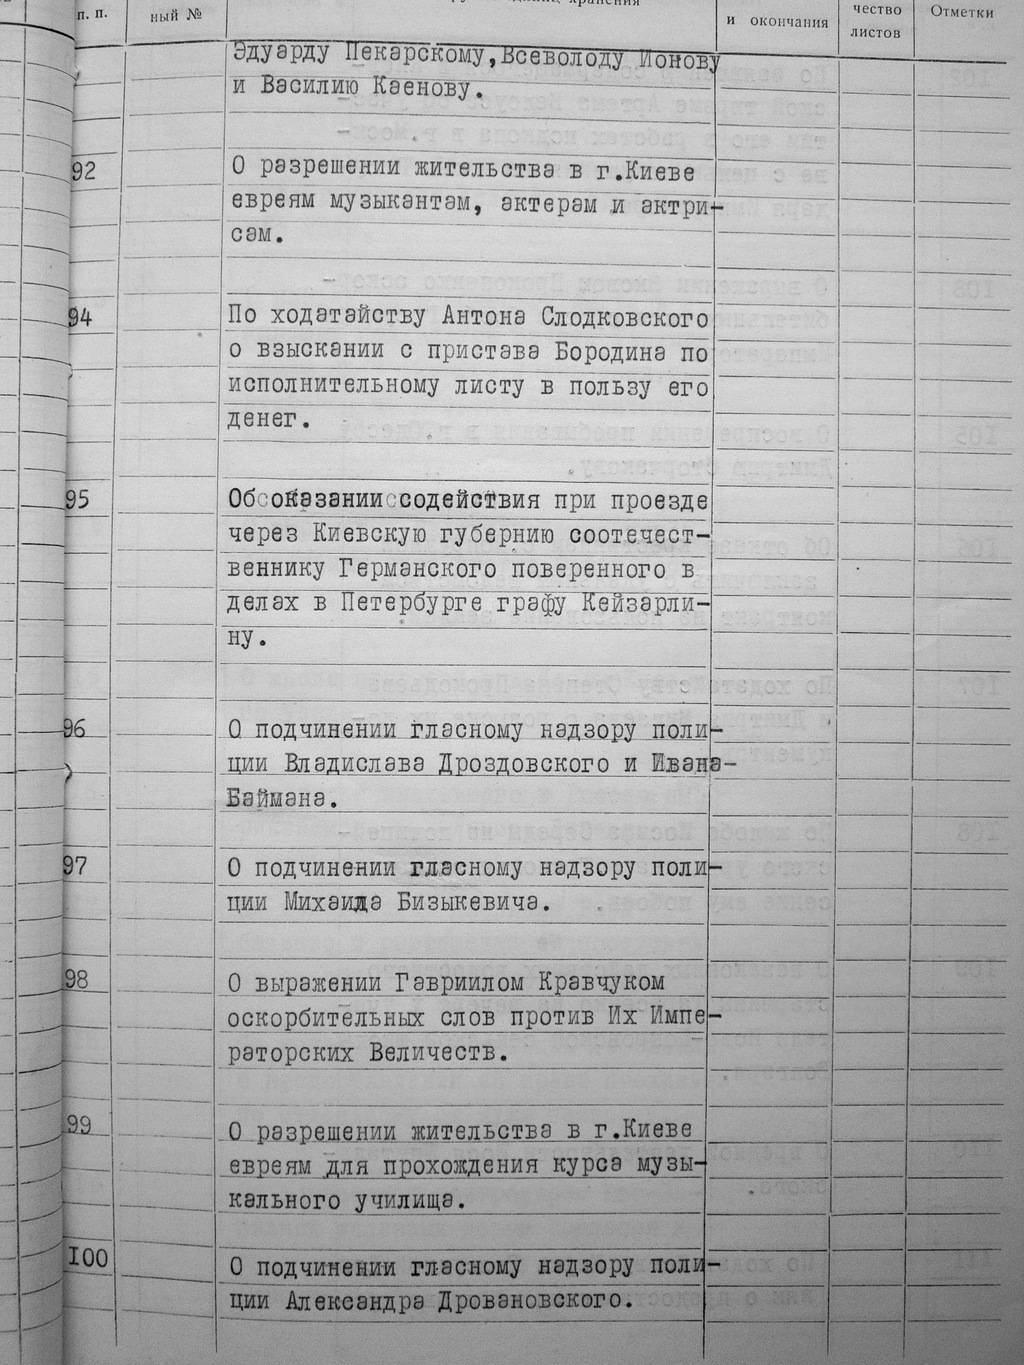 п. п.
ный №
хранения
и окончания
чество
листов
Отметки
Эдуарду Пекарскому, Всеволоду Ионову
и Василию Каенову.
92
О разрешении жительства в г.Киеве
евреям музыкантам, актерам и актри-
сам.
94
По ходатайству Антона Слодковского
о взыскании с пристава Бородина по
исполнительному листу в пользу его
денег.
95
Об оказании содействия при проезде
через Киевскую губернию соотечест-
веннику Германского поверенного в
делах в Петербурге графу Кейзарли-
ну.
96
О подчинении гласному надзору поли-
ции Владислава Дроздовского и Ивана-
Баймана.
97
О подчинении гласному надзору поли-
ции Михаила Бизыкевича.
98
О выражении Гавриилом Кравчуком
оскорбительных слов против Их Импе-
раторских Величеств.
99
О разрешении жительства в г.Киеве
евреям для прохождения курса музы-
кального училища.
100
О подчинении гласному надзору поли-
ции Александра Дровановского.